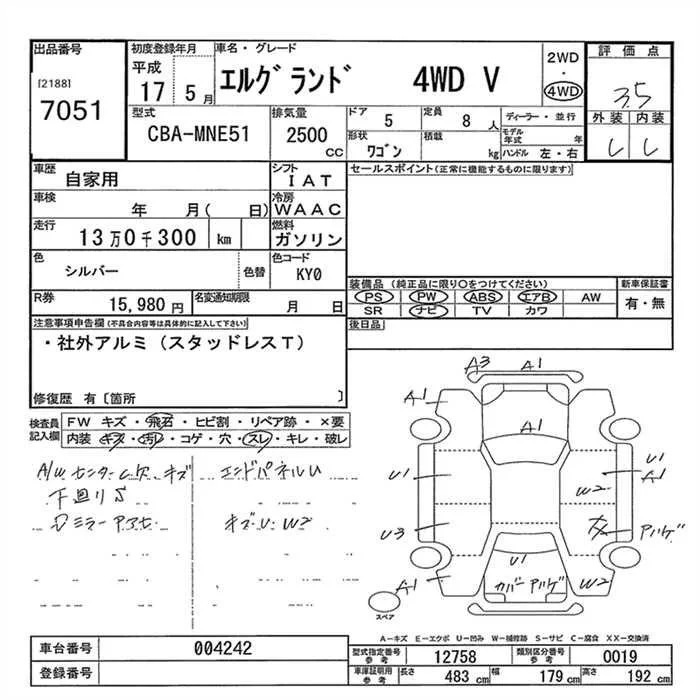 出品番号
[2188]
7051
初度登録年月
平成
17 5月
車名・グレード
エルグランド 4WD V
2WD
・
4WD
評価点
3.5
外装 内装
型式
CBA-MNE51
排気量
2500
CC
ドア
5
定員
8人
ディーラー・並行
形状
ワゴン
積載
kg
モデル年式 年
ハンドル 左・右
車歴
自家用
シフト
IAT
セールスポイント(正常に機能するものに限ります)
車検
年 月( 日)
冷房
WAAC
走行
13万0千300 km
燃料
ガソリン
色
シルバー
色替
色コード
KY0
装備品(純正品に限り○をつけてください)
新車保証書
PS PW ABS エアB AW
有・無
SR ナビ TV カワ
R券
15,980円
名変通知期限
月 日
後日品
注意事項申告欄(不具合内容等は具体的に記入して下さい)
・社外アルミ(スタッドレスT)
修復歴 有〔箇所 〕
検査員
記入欄
FW キズ・飛石・ヒビ割・リペア跡・×要
内装 キズ・汚れ・コゲ・穴・スレ・キレ・破レ
A/W センターC欠 キズ
下廻りS
エンドパネルU
キズU W2
A3 A1
A1
A1
U1
U1
A1
W2
U3
アリハゲ
U1
A1
カバーアリハゲ
W2
スペア
A−キズ E−エクボ U−凹み W−補修跡 S−サビ C−腐食 XX−交換済
車台番号
004242
登録番号
型式指定番号
参考
12758
類別区分番号
参考
0019
車庫証明用
参考
長さ
483 cm
幅
179 cm
高さ
192 cm